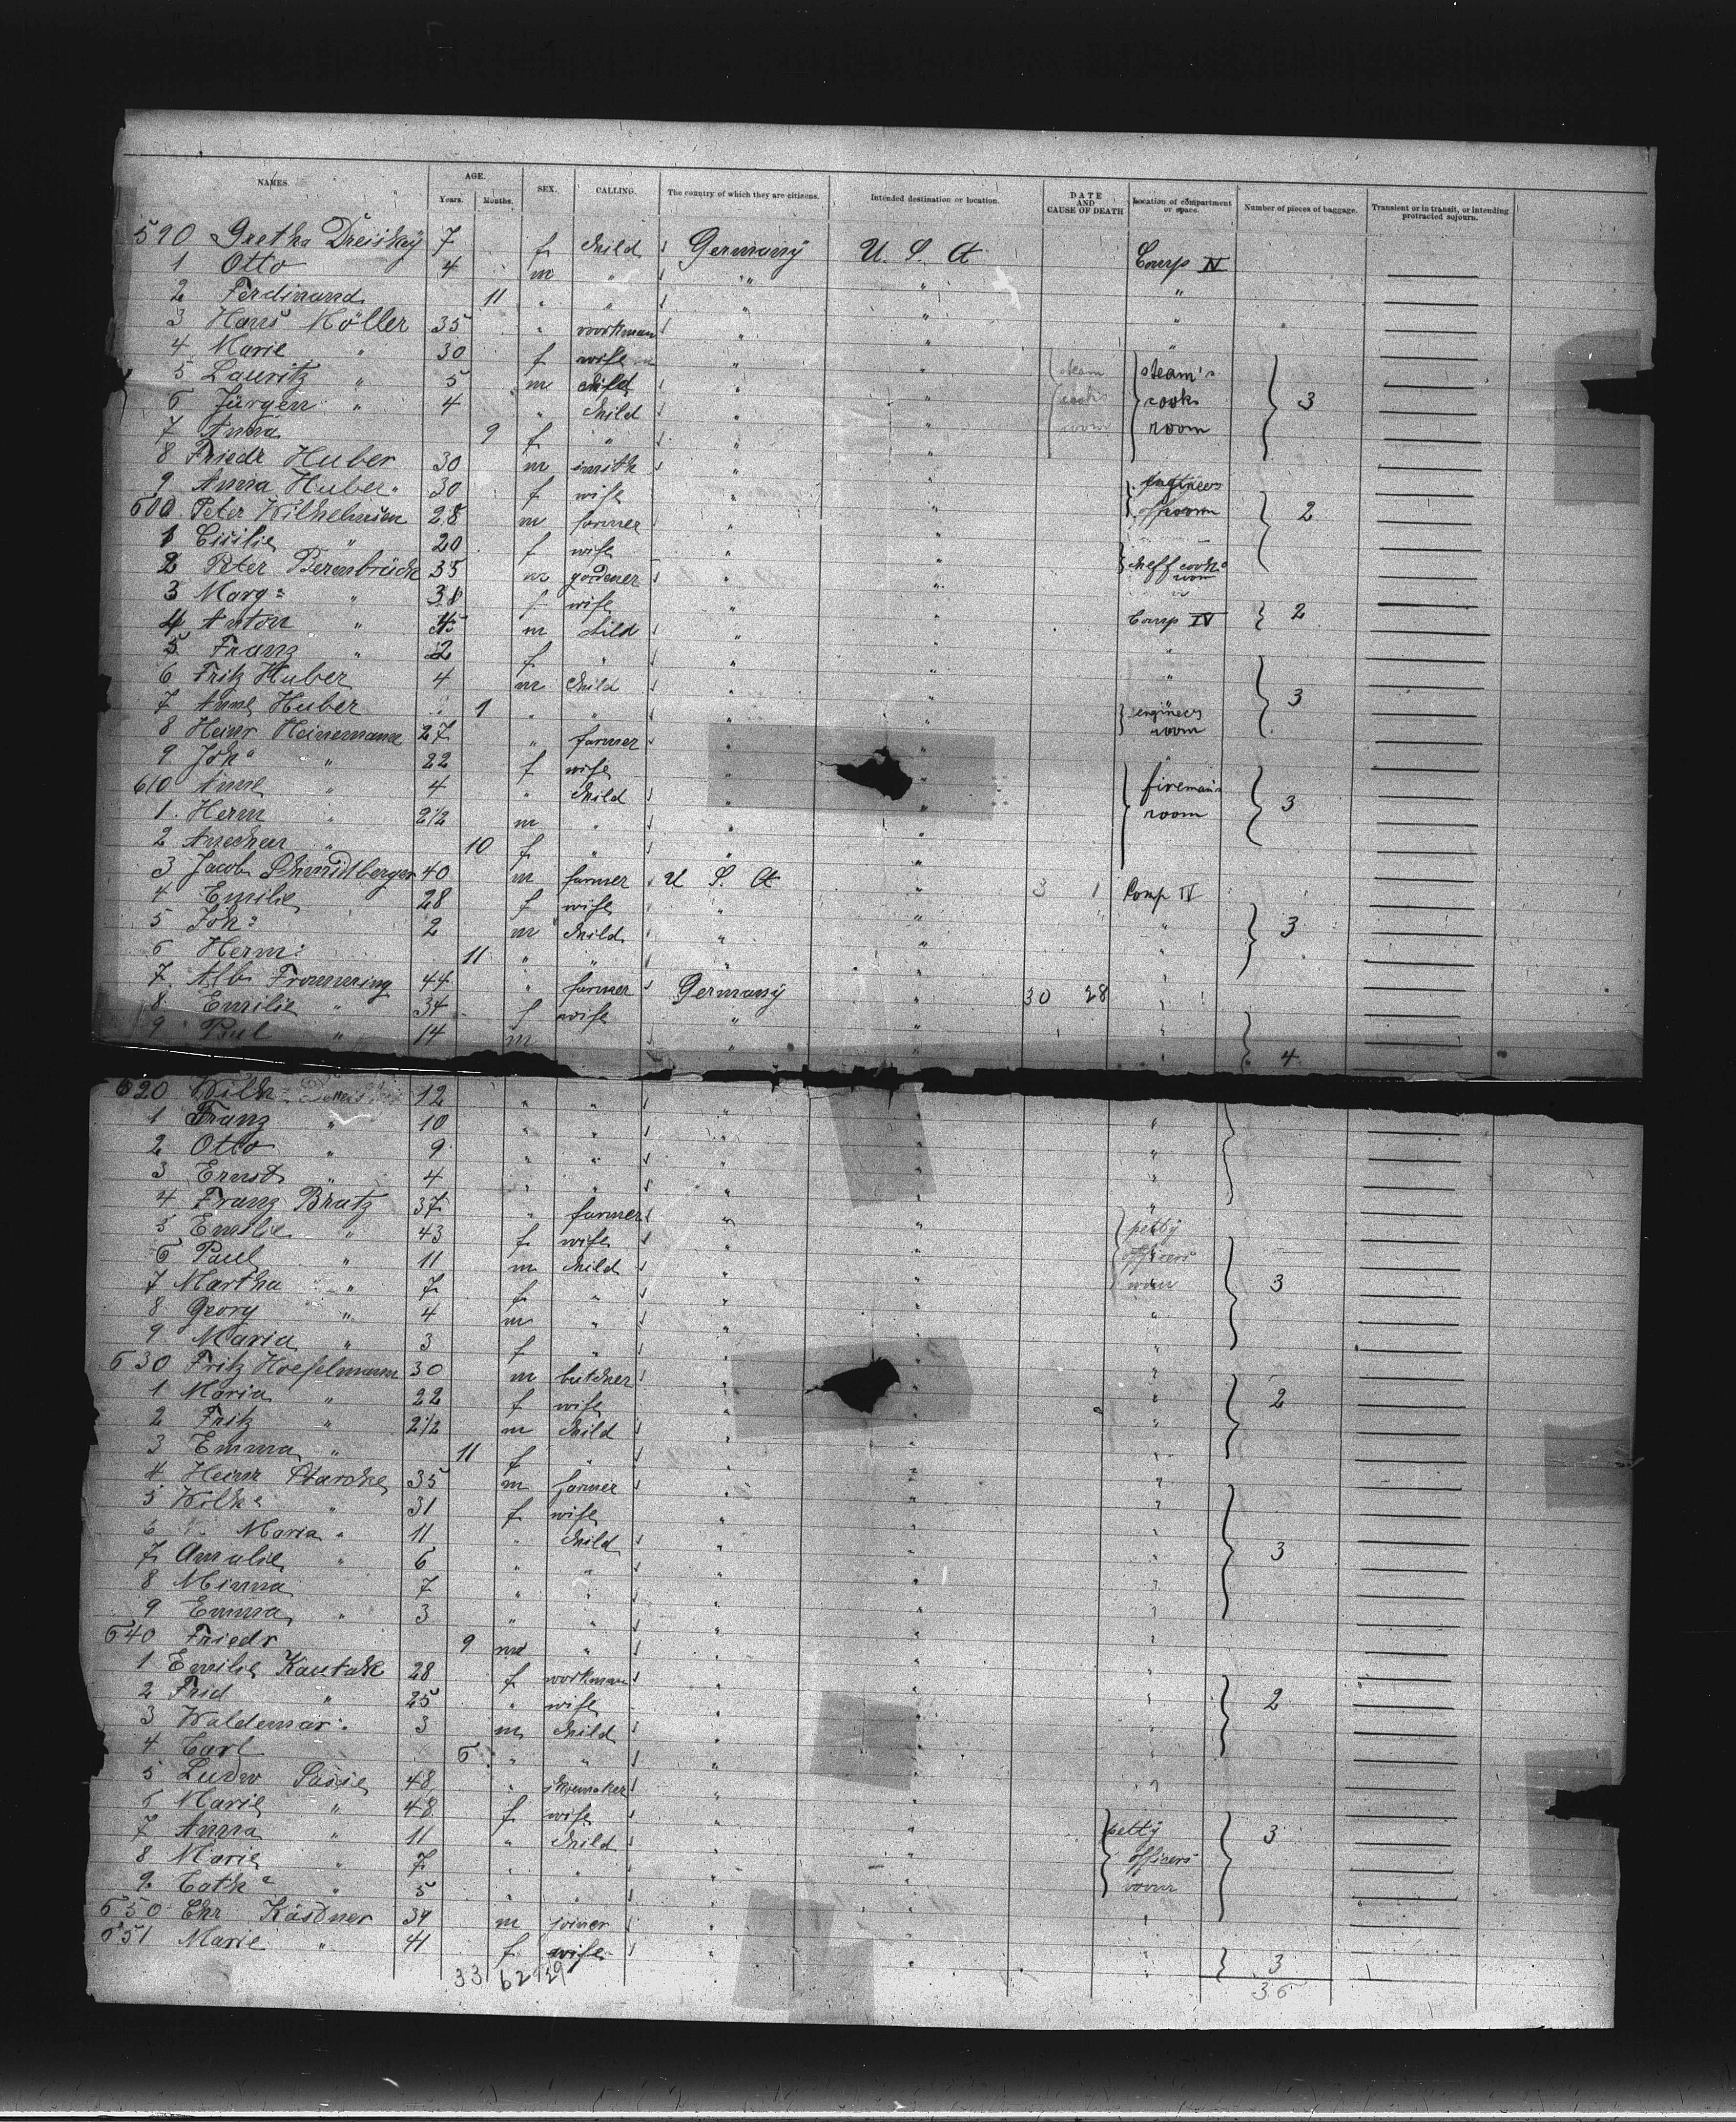 NAMES. AGE. Years. Months. SEX. CALLING. The country of which they are citizens. Intended destination or location. DATE AND CAUSE OF DEATH Location of compartment or space. Number of pieces of baggage. Transient or in transit, or intending protracted sojourn.
590 Gretha 7 f child Germany U. S. A Comp IV
1 Otto 4 m " " " "
2 Ferdinand 11 " " " " "
3 Hans Möller 35 " workman " " "
4 Marie " 30 f wife " "
5 Lauritz " 5 m child " " steam's
6 Jürgen " 4 " child " " cook 3
7 Anna 9 f " " " room
8 Friedr Huber 30 m smith " "
9 Anna Huber 30 f wife " " engineers
600 Peter Wilhelmsen 28 m farmer " " room 2
1 Cicilie " 20 f wife " "
2 Peter 35 m gardener " " cheff cooks room
3 Marg " 38 f wife " "
4 Anton " m child " " Comp IV 2
5 Franz " 2 f " " " "
6 Fritz Huber 4 m child " " "
7 Anna Huber 1 " " " " engineers 3
8 Heinr Heinemann 27 " farmer " " room
9 Joh " 22 f wife " "
610 Anna " 4 " child " " fireman's
1 Herm " 2 1/2 m " " " room 3
2 " 10 f " " "
3 Jacob Schmidtberger 40 m farmer U S. A " 3 1 Comp IV
4 Emilie 28 f wife " "
5 Joh 2 m child " " " 3
6 Herm 11 " " " " "
7 Alb Frommering 44 " farmer Germany " 30 28 "
8 Emilie " 34 f wife " " "
9 Paul " 14 m " " " 4
620 Wilh 12 " " " "
1 Franz " 10 " " " " "
2 Otto " 9 " " " " "
3 Ernst " 4 " " " "
4 Franz Bratz 37 " farmer " " "
5 Emilie " 43 f wife " " petty
6 Paul " 11 m child " " officers
7 Martha " 7 f " " " room 3
8 Georg " 4 m " " " "
9 Maria " 3 f " " " "
630 Fritz Hoefelmann 30 m butcher " " "
1 Maria " 22 f wife " " " 2
2 Fritz " 2 1/2 m child " " "
3 Emma " 11 f " " " "
4 Heinr Starcke 35 m farmer " " "
5 Wilh " 31 f wife " " "
6 Maria " 11 " child " " "
7 Amalie " 6 " " " " " 3
8 Minna 7 " " " " "
9 Emma " 3 " " " " "
640 Friedr 9 m " " " "
1 Emilie 28 f workman " " "
2 Frid " 25 " wife " " " 2
3 Waldemar 3 m child " " "
4 Carl 6 " " " "
5 Ludw 48 " shoemaker " " "
6 Marie " 48 f wife " "
7 Anna " 11 " child " " petty 3
8 Marie " 7 " " " " officers
9 Cath " 5 " " " " room
650 Chr Kästner 39 m joiner " " "
651 Marie " 41 f wife " " " 3
33 62 29 36